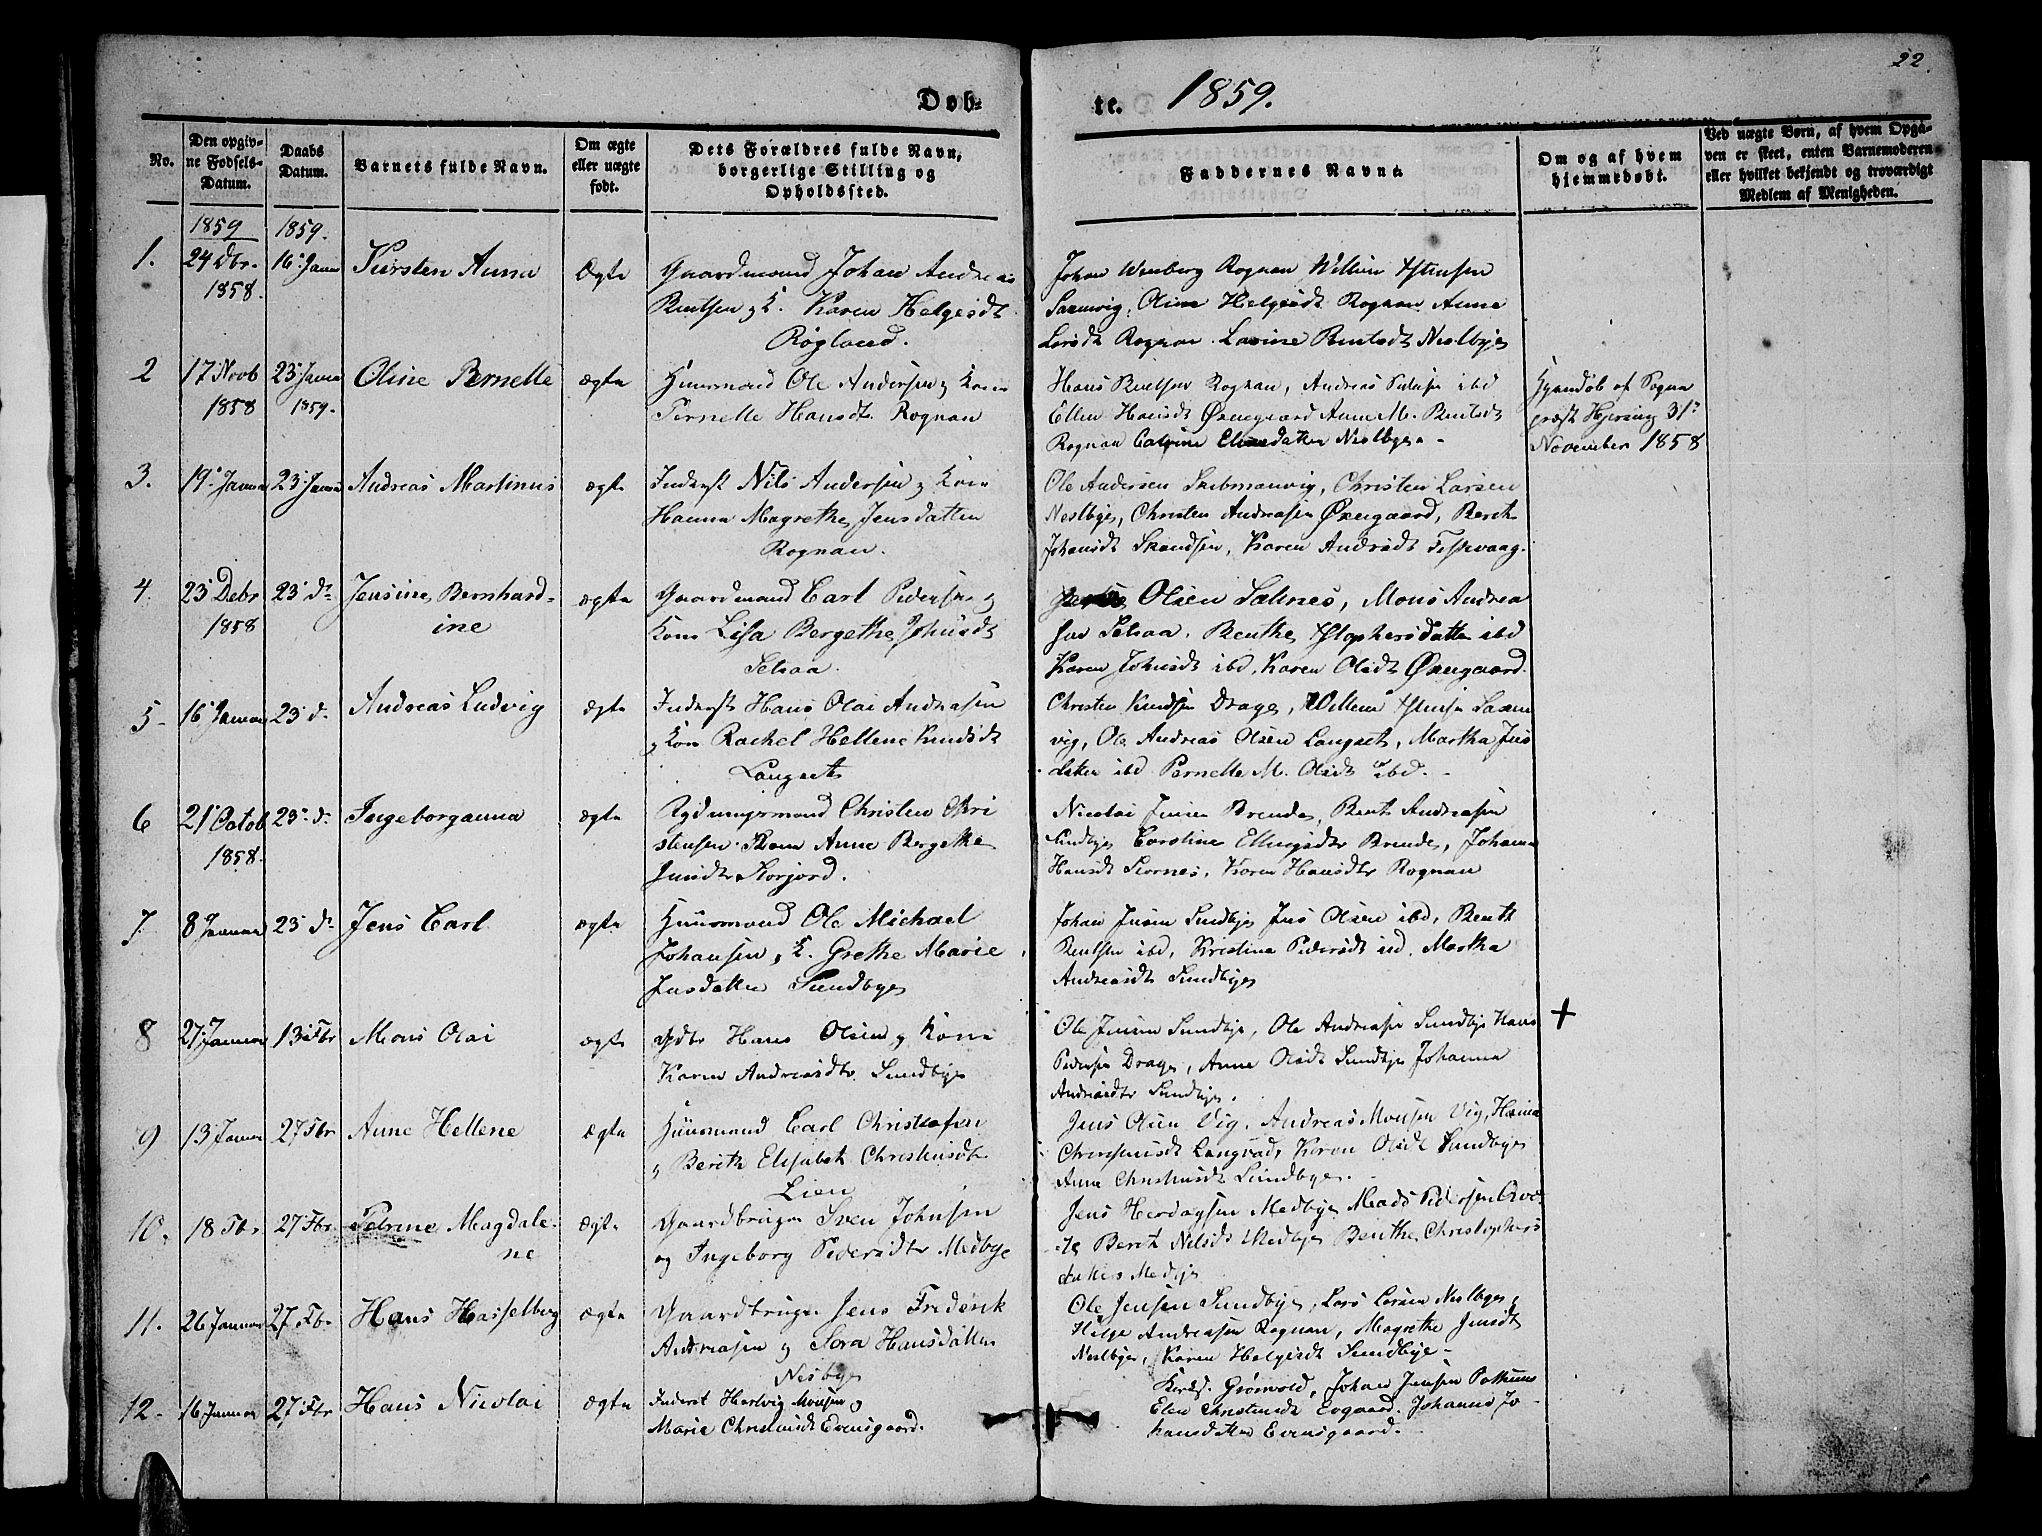 22.
Døb-
te. 1859.
No.
Den opgiv-
ne Fødsels-
Datum.
Daabs
Datum.
Barnets fulde Navn.
Om ægte
eller uægte
født.
Dets Forældres fulde Navn,
borgerlige Stilling og
Opholdssted.
Faddernes Navne.
Om og af hvem
hjemmedøbt.
Ved uægte Børn, af hvem Opgi-
ven er skeet, enten Barnemoderen
eller hvilket bekjendt og troværdigt
Medlem af Menigheden.
1859
1859.
1. 24 Dbr. 16 Janua Kirsten Anna Ægte Gaardmand Johan Andreas
1858.
Bentsen og K. Karen Helgesdt
Rögland.
Johan Wenberg Rognan Willum Istensen
Saxnvig, Oline Helgesdt Rognan Anne
Larsdt Rognan. Lavine Bentsdt Neslbye
2 17 Novb 23 Janua Oline Pernelle ægte Huusmand Ole Andersen og Kone
1858 1859.
Pernelle Hansdt. Rognan
Hans Bentsen Rognan, Andreas Pedersen ibd
Ellen Hansdt Øxnegaard Anne M. Bentsdt
Rognan Catrine datter Neslbye
Hjemdøb af Sogne
præst Hjersing 31te
November 1858
3. 19 Janua 23 Janua Andreas Martinus ægte Inderst Nils Andersen og Kone
Hanna Magrethe Jensdatter
Rognan.
Ole Andersen Skibmanvig, Christen Larsen
Neslbye, Christen Andreasen Øxengaard, Berit
Johansdt Skandsen, Karen Andrsdt Fiskvaag.
4. 23 Debr 23 d. Jensine Bernhard- ægte Gaardmand Carl Pedersen og
1858
ine
Kone Lisa Bergethe Johnsdt
Setsaa.
Olsen Saltnes, Mons Andrea
sen Setsaa. Benthe Istophersdatter ibd
Karen Johnsdt ibd, Karen Olsdt Øxengaard.
5. 16 Januar 23 d. Andreas Ludvig ægte Inderst Hans Olai Andreasen
og Kone Rachel Hellene Knudsdt
Langset
Christen Knudsen Drage, Willum Istensen Saxen
vig, Ole Andreas Olsen Langset, Martha Jens
datter ibd Pernelle M. Olsdt ibd.
6 21 Octob 23 d. Ingeborganna ægte Rydningsmand Christen Chri
1858.
stensen Kone Anne Bergethe
Jensdtr Storjord.
Nicolai Jensen Brende, Bent Andreasen
Sundbye Caroline Ellingsdtr Brende, Johanna
Hansdt Stornes, Karen Hansdtr Rognan
7. 8 Januar 23 d. Jens Carl ægte Huusmand Ole Michael
Johansen, K. Grethe Marie
Jensdatter Sundbye
Johan Jensen Sundbye Jens Olsen ibd, Benth
Bentsen ibd, Kristine Pedersdt ibd. Martha
Andreasdt Sundbye
8 27 Januar 13 Fbr Mons Olai ægte Hans Olsen og Kone
Karen Andreasdtr Sundbye
Ole Jensen Sundbye, Ole Andreasen Sundbye Hans
Pedersen Drage, Anne Olsdt Sundbye Johanna
Andreasdtr Sundbye.
+
9 13 Januar 27 Fbr Anne Hellene ægte Huusmand Carl Christiafen
og Berith Elisabeth Christensdt
Lien
Jens Olsen Vig, Andreas Monsen Vig, Hanna
Christensdt Langsæd, Karen Olsdt Sundbye
Anne Christensdt Sundbye.
10. 18 Fbr 27 Fbr. Petrine Magdale- ægte Gaardbruger Sven Johnsen
ne
og Ingeborg Pedersdtr Medbye
Jens Herdagsen Medbye Mads Pedersen
Berit Nilsdt Medbye Benthe Christophers
datter Medbye
11. 26 Januar 27 Fbr Hans Hasselberg ægte Gaardbruger Jens Frederik
Andreasen og Sara Hansdatter
Nesbye
Ole Jensen Sundbye, Lars Larsen Neslbye,
Helge Andreasen Rognan, Magrethe Jensdt
Neslbye, Karen Helgesdt Sundbye
12. 16 Januar 27 Fbr Hans Nicolai ægte Inderst Hartvig Monsen og
Marie Christensdt Evensgaard.
Kirks. Grønvold, Johan Jensen
Elen Christensdt Evgaard. Johanna Jo
hansdatter Evensgaard.